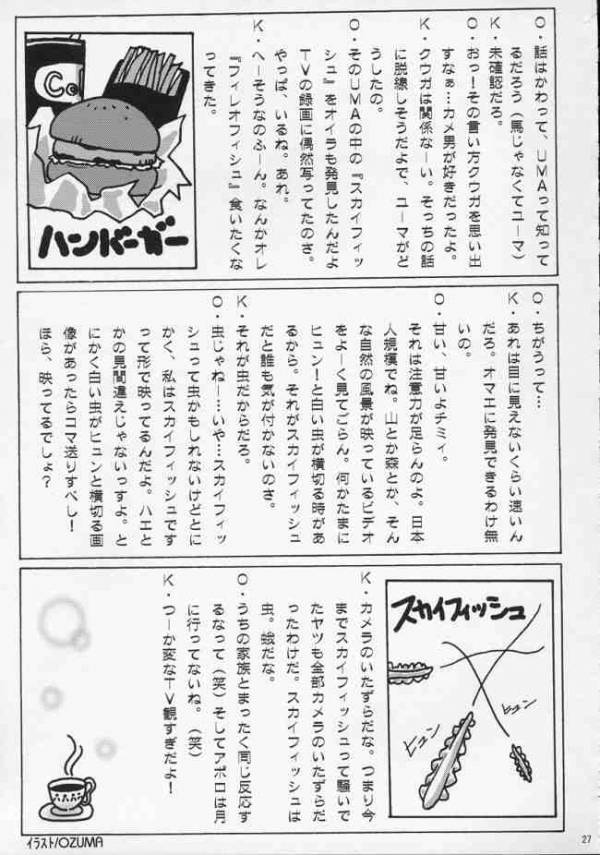 O・話はかわって、UMAって知って
るだろう（馬じゃなくてユーマ）
K・未確認だろ。
O・おっ！その言い方クウガを思い出
すなぁ…カメ男が好きだったよ。
K・クウガは関係なーい。そっちの話
に脱線しそうだよで、ユーマがど
うしたの。
O・そのUMAの中の『スカイフィッ
シュ』をオイラも発見したんだよ
TVの録画に偶然写ってたのさ。
やっぱ、いるね。あれ。
K・へーそうなのふーん。なんかオレ
『フィレオフィッシュ』食いたくな
ってきた。
Co
ハンバーガー
O・ちがうって…
K・あれは目に見えないくらい速いん
だろ。オマエに発見できるわけ無
いの。
O・甘い、甘いよチミィ。
それは注意力が足らんのよ。日本
人規模でね。山とか森とか、そん
な自然の風景が映っているビデオ
をよーく見てごらん。何かたまに
ヒュン！と白い虫が横切る時があ
るから。それがスカイフィッシュ
だと誰も気が付かないのさ。
K・それが虫だからだろ。
O・虫じゃねー…いや…スカイフィッ
シュって虫かもしれないけどとに
かく、私はスカイフィッシュです
って形で映ってるんだよ。ハエと
かの見間違えじゃないっすよ。と
にかく白い虫がヒュンと横切る画
像があったらコマ送りすべし！
ほら、映ってるでしょ？
スカイフィッシュ
ヒュン
ヒュン
K・カメラのいたずらだな。つまり今
までスカイフィッシュって騒いで
たヤツも全部カメラのいたずらだ
ったわけだ。スカイフィッシュは
虫。蛾だな。
O・うちの家族とまったく同じ反応す
るなって（笑）そしてアポロは月
に行ってないね。（笑）
K・つーか変なTV観すぎだよ！
イラスト/OZUMA
27